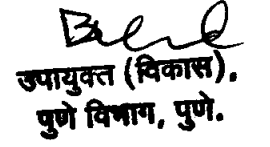 उपायुक्त (विकास).
पुणे विभाग, पुणे.